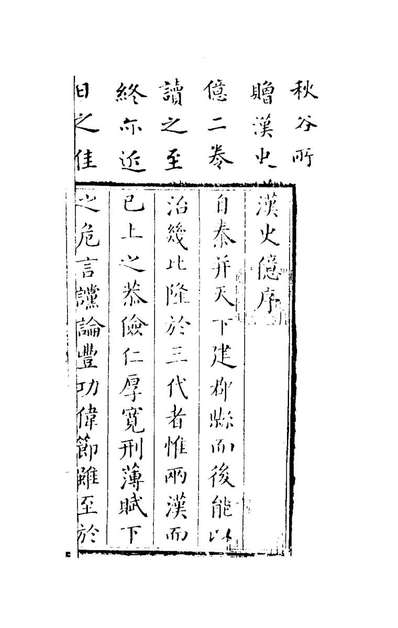 秋谷所
贈漢史
億二卷
讀之至
終亦近
日之佳
漢史億序
自秦并天下建郡縣而後能以
治幾比隆於三代者惟兩漢而
已上之恭儉仁厚寬刑薄賦下
之危言讜論豐功偉節雖至於